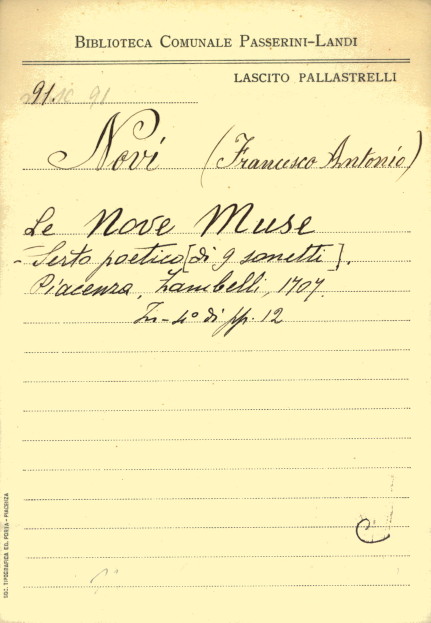 BIBLIOTECA COMUNALE PASSERINI-LANDI
LASCITO PALLASTRELLI
91.
Novi (Francesco Antonio)
Le Nove Muse
- Serto poetico [di 9 sonetti].
Piacenza, Zambelli, 1707.
In-4° di pp. 12
C
SOC. TIPOGRAFICA ED. PORTA - PIACENZA